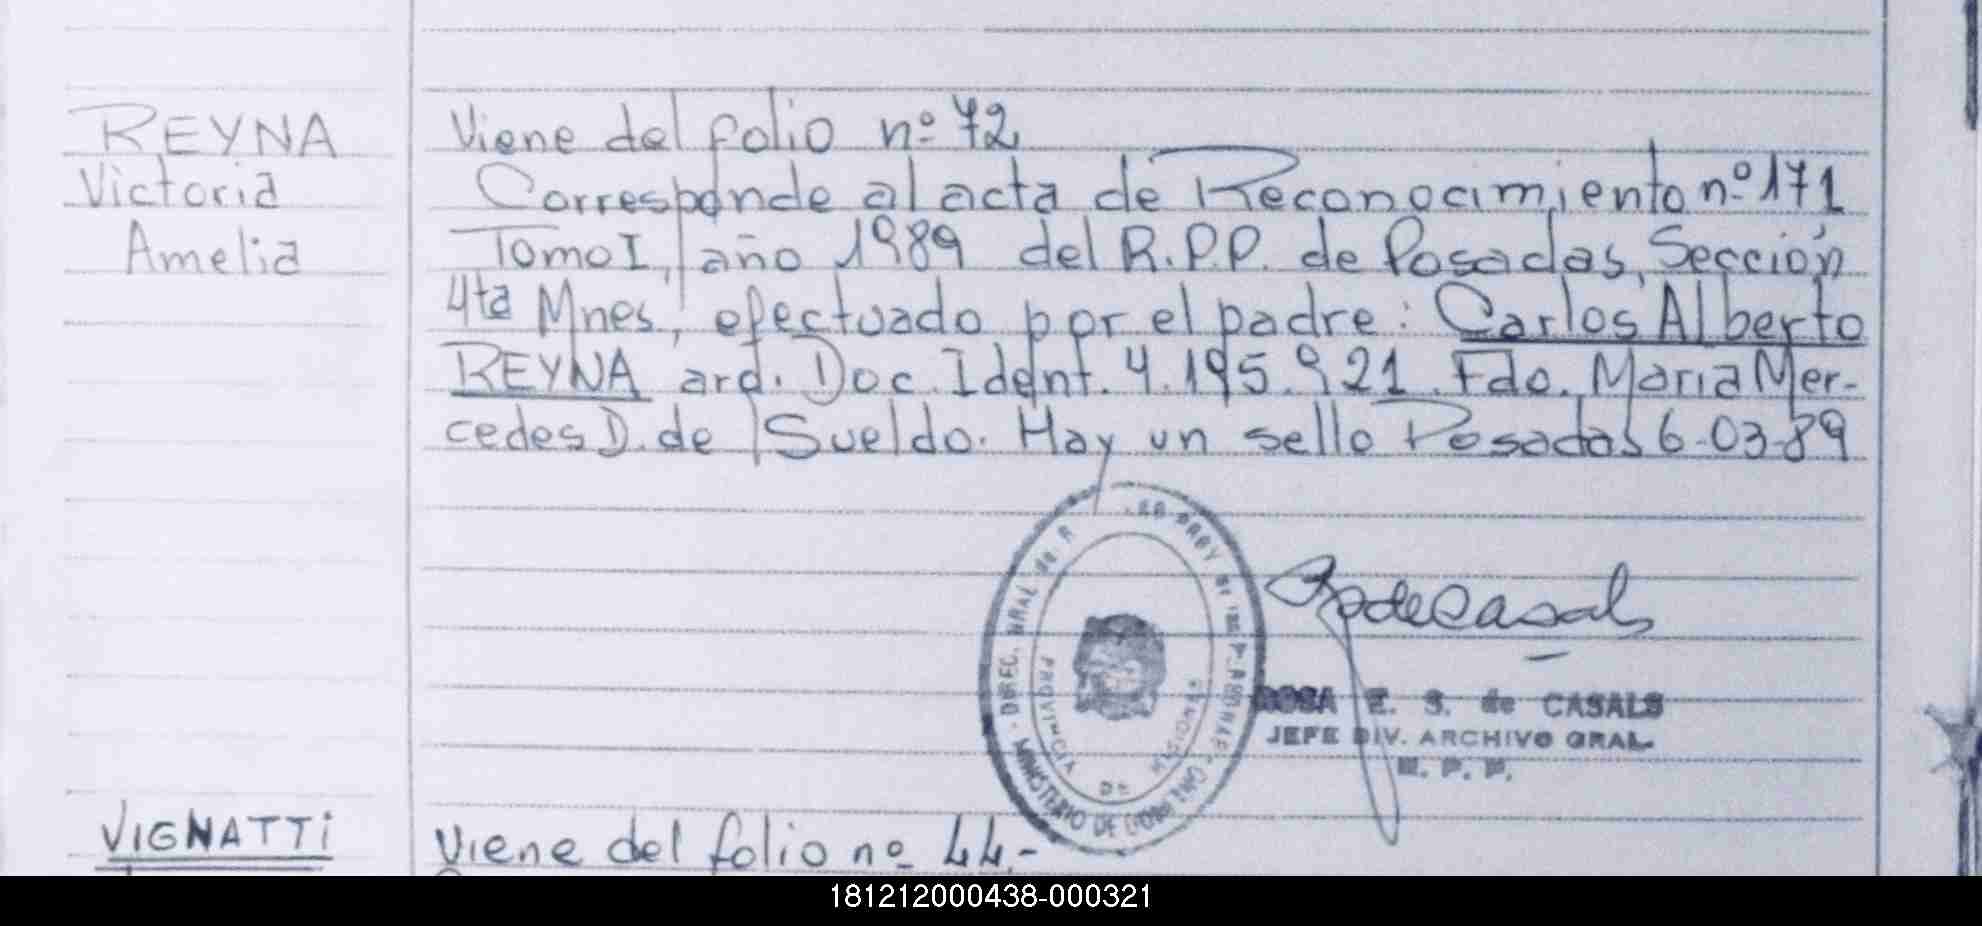 REYNA
Victoria
Amelia
Viene del folio nº 72
Corresponde al acta de Reconocimiento nº 171
Tomo I, año 1989 del R.P.P. de Posadas, Sección
4ta Mnes, efectuado por el padre: Carlos Alberto
REYNA arg. Doc. Ident. 4.195.921. Fdo. María Mer-
cedes D. de Sueldo. Hay un sello Posadas 6-03-89
DIREC. GRAL de
PROVINCIA DE
MINISTERIO DE
ROSA E. S. de CASALS
JEFE DIV. ARCHIVO GRAL.
R. P. P.
VIGNATTI
Viene del folio nº 44.-
181212000438-000321